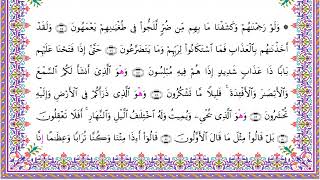 ۞ وَلَوْ رَحِمْنَٰهُمْ وَكَشَفْنَا مَا بِهِم مِّن ضُرٍّ لَّلَجُّوا۟ فِى طُغْيَٰنِهِمْ يَعْمَهُونَ ۝ وَلَقَدْ
أَخَذْنَٰهُم بِٱلْعَذَابِ فَمَا ٱسْتَكَانُوا۟ لِرَبِّهِمْ وَمَا يَتَضَرَّعُونَ ۝ حَتَّىٰٓ إِذَا فَتَحْنَا عَلَيْهِم
بَابًا ذَا عَذَابٍ شَدِيدٍ إِذَا هُمْ فِيهِ مُبْلِسُونَ ۝ وَهُوَ ٱلَّذِىٓ أَنشَأَ لَكُمُ ٱلسَّمْعَ
وَٱلْأَبْصَٰرَ وَٱلْأَفْـِٔدَةَ ۚ قَلِيلًا مَّا تَشْكُرُونَ ۝ وَهُوَ ٱلَّذِى ذَرَأَكُمْ فِى ٱلْأَرْضِ وَإِلَيْهِ
تُحْشَرُونَ ۝ وَهُوَ ٱلَّذِى يُحْىِۦ وَيُمِيتُ وَلَهُ ٱخْتِلَٰفُ ٱلَّيْلِ وَٱلنَّهَارِ ۚ أَفَلَا تَعْقِلُونَ
۝ بَلْ قَالُوا۟ مِثْلَ مَا قَالَ ٱلْأَوَّلُونَ ۝ قَالُوٓا۟ أَءِذَا مِتْنَا وَكُنَّا تُرَابًا وَعِظَٰمًا أَءِنَّا